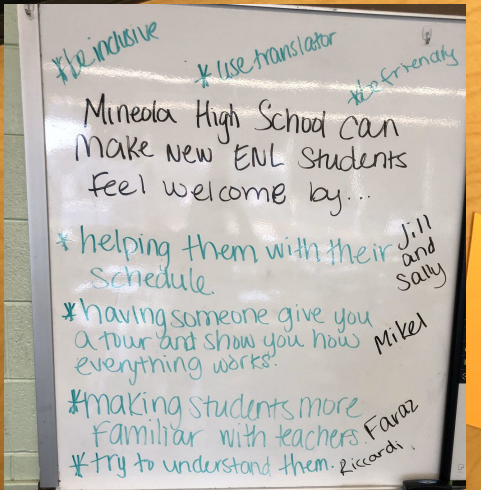 *be inclusive
*use translator
*be friendly
Mineola High School can
make new ENL Students
feel welcome by...
*helping them with their
schedule.
Jill
and
Sally
*having someone give you
a tour and show you how
everything works.
Mikel
*making students more
familiar with teachers.
Faraz
*try to understand them.
Riccardi